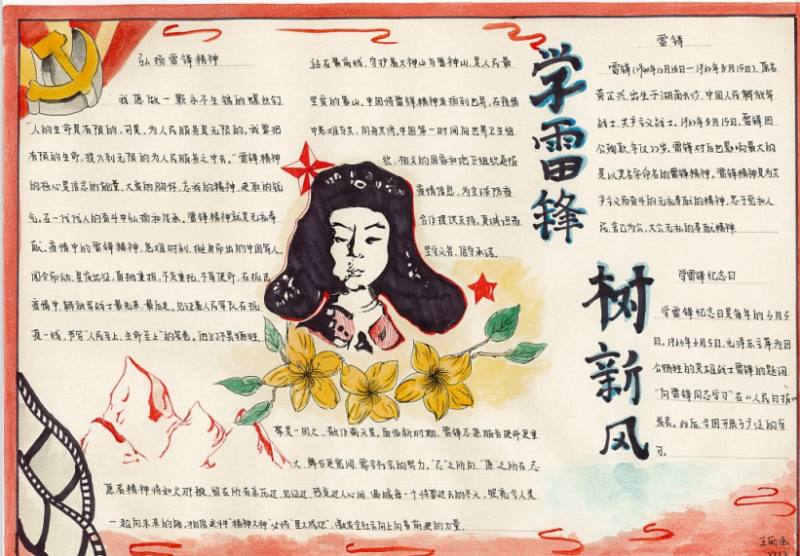 弘扬雷锋精神
我愿做一颗永不生锈的螺丝钉
"人的生命是有限的,可是,为人民服务是无限的,我要把
有限的生命,投入到无限的为人民服务之中去。"雷锋精神
的核心是信念的能量、大爱的胸怀、忘我的精神、进取的锐
气,在一代代人的奋斗中弘扬和传承。雷锋精神就是无私奉
献。疫情中的雷锋精神,危难时刻,挺身而出的中国军人
闻令而动,星夜出征,肩挑重担,不负重托,不辱使命,在抗击
疫情中,解放军战士最先来,最后走。见证着人民军队在抗
疫一线,书写"人民至上,生命至上"的答卷。他们不畏牺牲,
站在最前线,守护着火神山与雷神山,是人民最
坚实的靠山。中国将雷锋精神发扬到世界,在疫情
中患难与共,同舟共济,中国第一时间向世界卫生组
织、相关的国家和地区组织通报
疫情信息,为全球防疫
合作提供支持,真诚坦荡
学雷锋
树新风
雷锋
雷锋(1940年12月18日—1962年8月15日),原名
雷正兴,出生于湖南长沙,中国人民解放军
战士,共产主义战士。1962年8月15日,雷锋因
公殉职,年仅22岁。雷锋对后世影响最大的
是以其名字命名的雷锋精神。雷锋精神是为共
产主义而奋斗的无私奉献的精神,忠于党和人
民、舍己为公、大公无私的奉献精神
学雷锋纪念日
学雷锋纪念日是每年的3月5
日。1963年3月5日,毛泽东主席为因
公牺牲的英雄战士雷锋的题词
"向雷锋同志学习"在《人民日报》
发表。此后,全国开展了广泛的学
习。
聚是一团火,散作满天星。面临新时期,雷锋志愿服务使命更重
大,舞台更宽阔,需学习者的努力。"志"之所向,"愿"之所在,志
愿者精神将如火如炬,留在所有亲历过、见证过、
一起向未来的路,相信这种"精神火种"必将"星火成炬",激发全社会向上向善前进的力量。